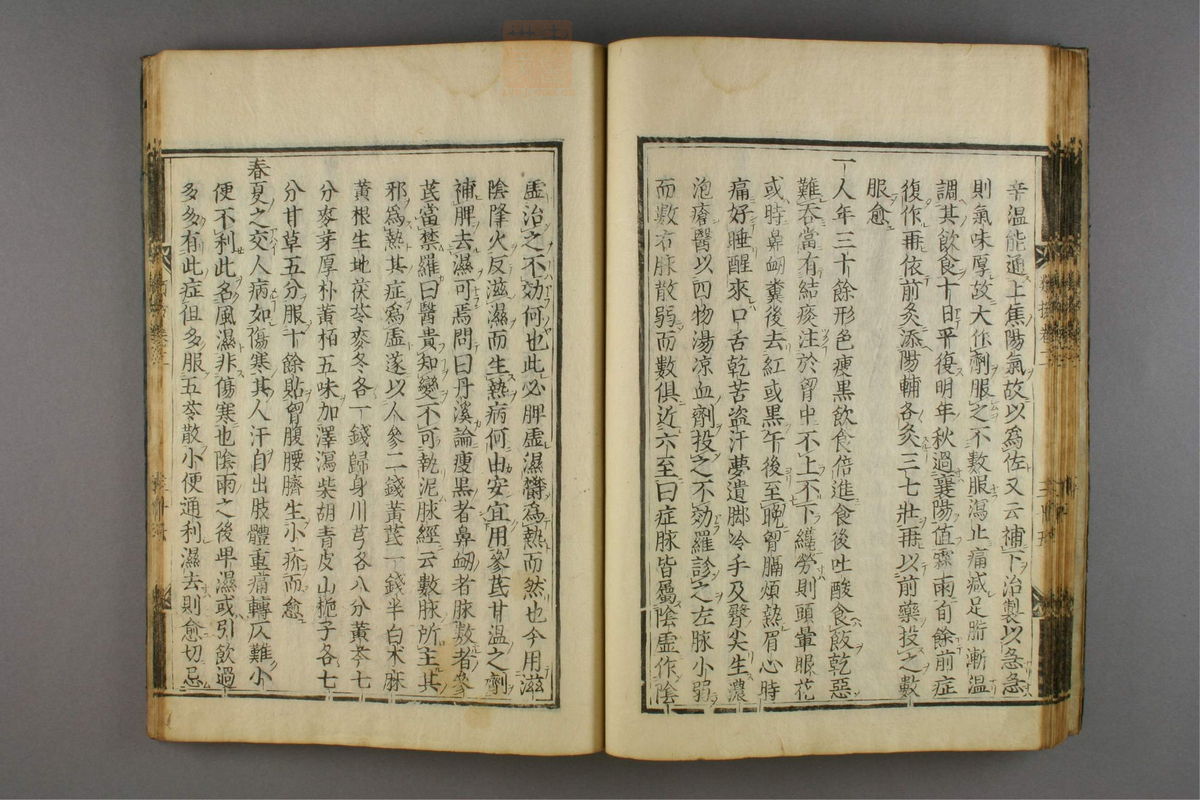 辛溫能通上焦陽氣故以爲佐又云補下治製以急急
則氣味厚故大作劑服之不數服瀉止痛減足胻漸溫
調其飲食十日平復明年秋過襄陽值霖雨旬餘前症
復作再依前灸添陽輔各灸三七壯再以前藥投之數
服愈
一人年三十餘形色瘦黑飲食倍進食後吐酸食飯乾惡
難吞當有結痰注於胷中不上不下纔勞則頭暈眼花
或時鼻衂糞後去紅或黑午後至晚胷膈煩熱眉心時
痛好睡醒來口舌乾苦盜汗夢遺脚冷手及臀尖生濃
泡瘡醫以四物湯凉血劑投之不効羅診之左脉小弱
而數右脉散弱而數俱近六至曰症脉皆屬陰虛作陰
虛治之不効何也此必脾虛濕欝爲熱而然也今用滋
陰降火反滋濕而生熱病何由安宜用參芪甘溫之劑
補脾去濕可焉問曰丹溪論瘦黑者鼻衂者脉數者參
芪當禁羅曰醫貴知變不可執泥脉經云數脉所主其
邪爲熱其症爲虛遂以人參二錢黃芪一錢半白术麻
黃根生地茯苓麥冬各一錢歸身川芎各八分黃芩七
分麥芽厚朴黃栢五味加澤瀉柴胡青皮山梔子各七
分甘草五分服十餘貼胷腹腰臍生小疥而愈
春夏之交人病如傷寒其人汗自出肢體重痛轉仄難小
便不利此名風濕非傷寒也陰雨之後卑濕或引飲過
多多有此症但多服五苓散小便通利濕去則愈切忌